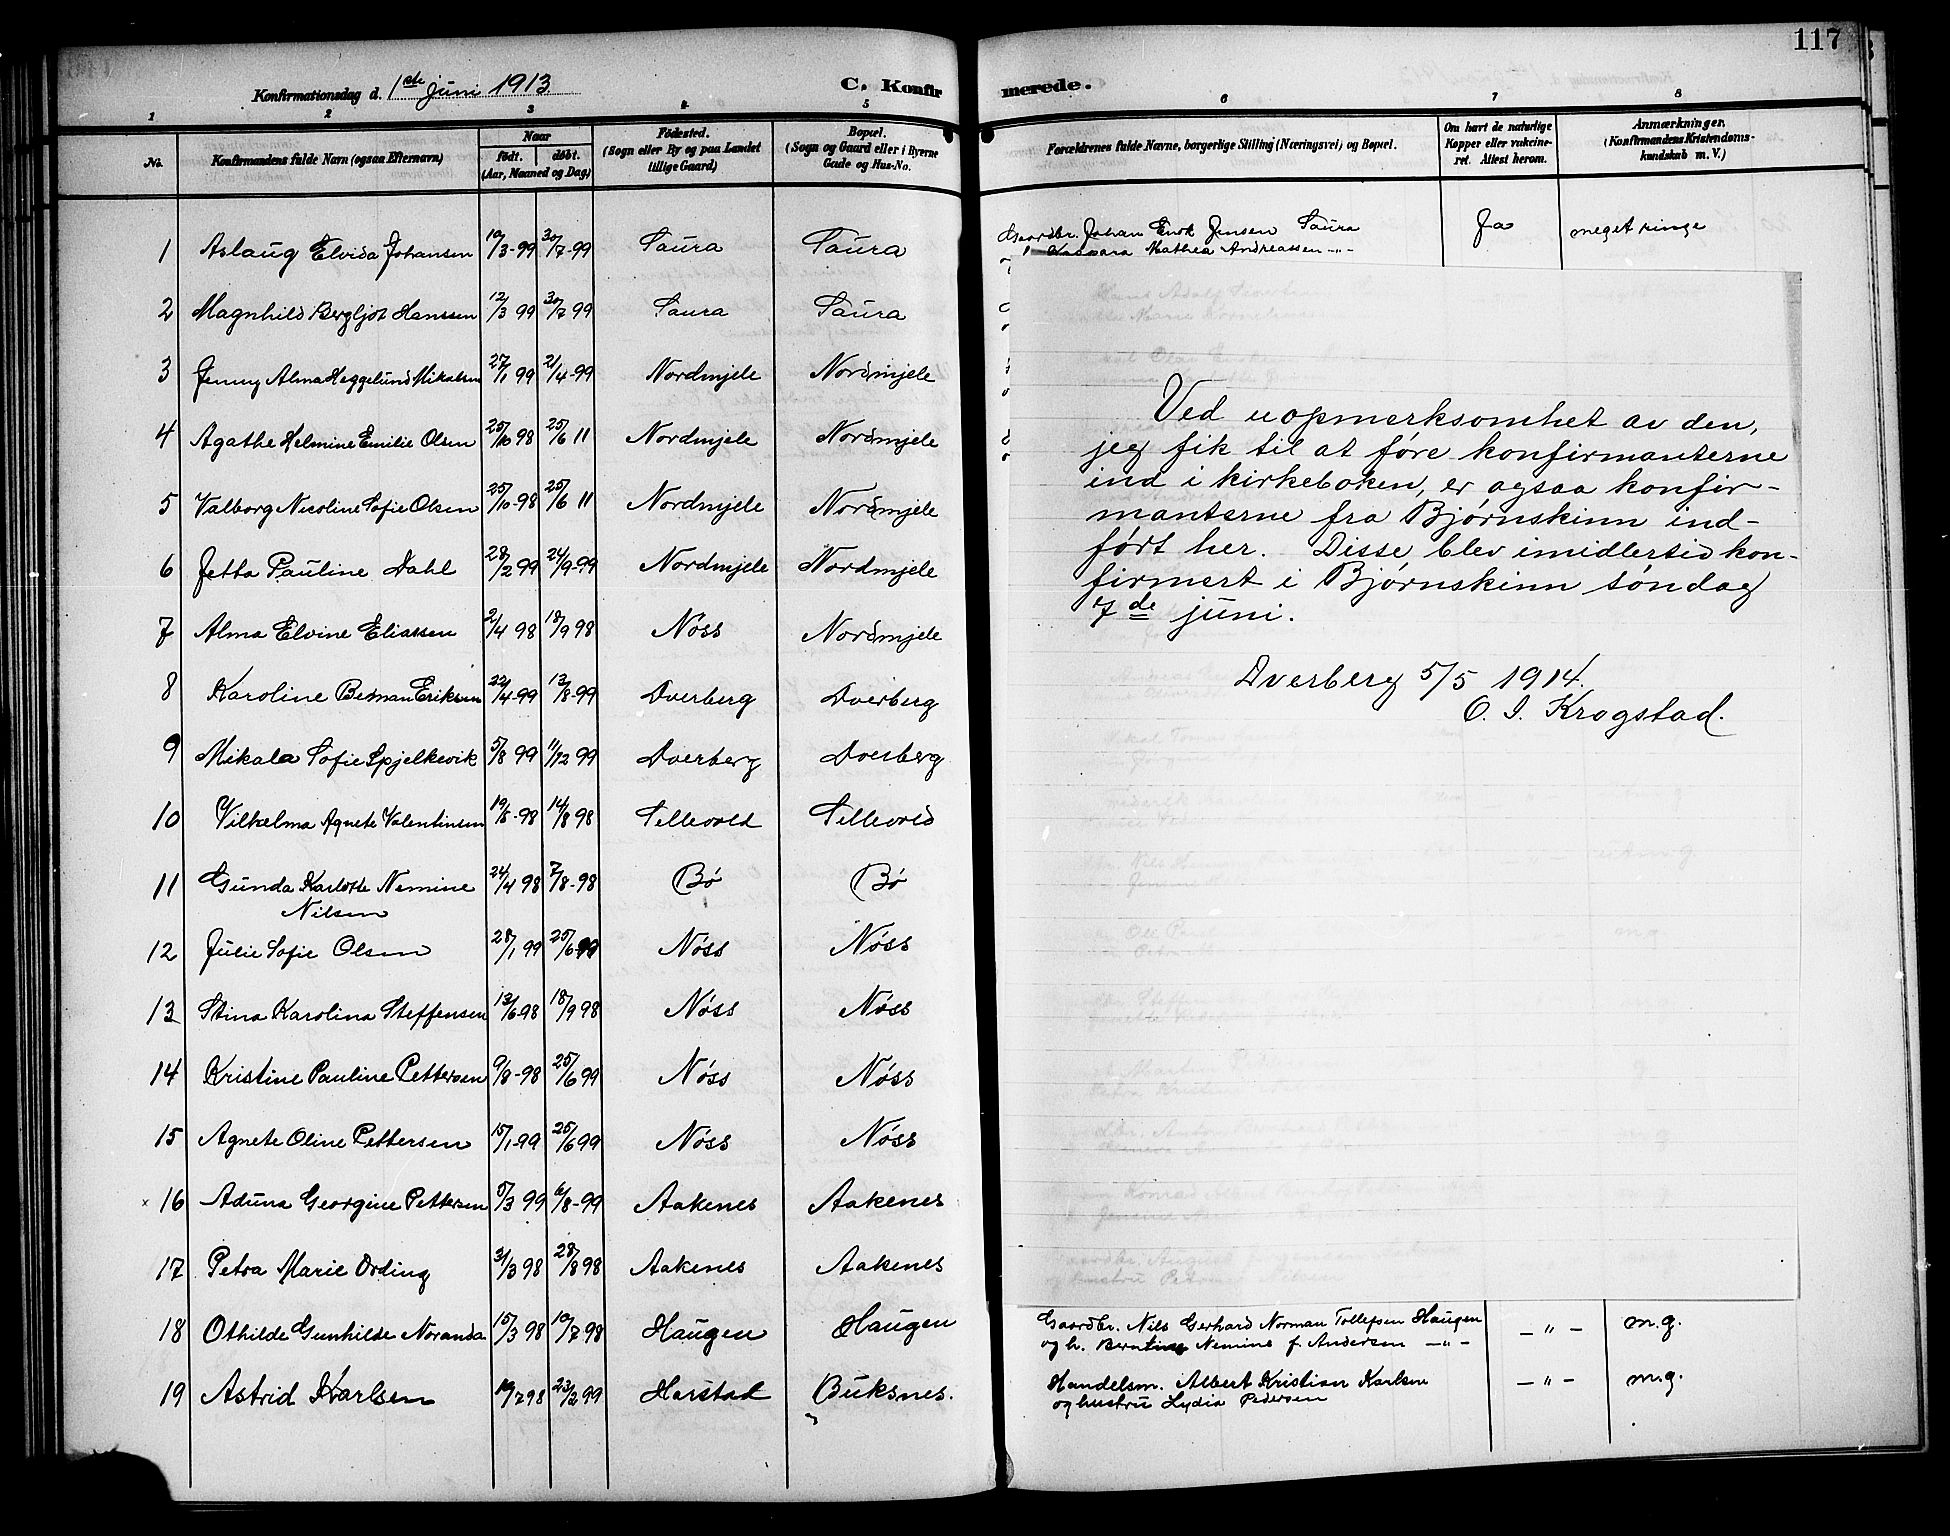 117
Konfirmationsdag d. 1ste juni 1913
C. Konfirmerede.
1 2 3 4 5 6 7 8
No.
Konfirmandens fulde Navn (ogsaa Efternavn)
Naar
født. døbt.
(Aar, Maaned og Dag)
Fødested.
(Sogn eller By og paa Landet
tillige Gaard)
Bopæl.
(Sogn og Gaard eller i Byerne
Gade og Hus-No.
Forældrenes fulde Navne, borgerlige Stilling (Næringsvei) og Bopæl.
Om havt de naturlige
Kopper eller vakcine-
ret. Attest herom.
Anmærkninger.
(Konfirmandens Kristendoms-
kundskab m. V.)
1 Aslaug Elvida Johansen 10/3-99 30/7-99 Saura Saura
Gaardbr. Johan Enok Jensen Saura Ja meget ringe
Kaspara Mathea Andreassen -"-
2 Magnhild Bergljot Hanssen 12/3 99 30/7 99 Saura Saura
3 Jenny Alma Heggelund Mikalsen 27/1 99 2/4-99 Nordmjele Nordmjele
4 Agathe Helmine Emilie Olsen 25/10 98 25/6 11 Nordmjele Nordmjele
5 Valborg Nicoline Sofie Olsen 25/10-98 25/6 11 Nordmjele Nordmjele
6 Jetta Pauline Dahl 28/2 99 24/9-99 Nordmjele Nordmjele
7 Alma Elvine Eliassen 2/4 98 18/9 98 Nöss Nordmjele
8 Karoline Beman Eriksen 22/4-99 13/8-99 Dverberg Dverberg
9 Mikala Sofie Spjelkevik 5/8 99 11/12 99 Dverberg Dverberg
10 Vilhelma Agnete Valentinsen 19/5-98 14/8 98 Sellevold Sellevold
11 Gunda Karlotte Nemine 24/4 98 7/8-98 Bö Bö
Nilsen
12 Julie Sofie Olsen 28/1 99 25/6-99 Nöss Nöss
13 Stina Karolina Steffensen 13/6-98 18/9 98 Nöss Nöss
14 Kristine Pauline Pettersen 9/8-98 25/6 99 Nöss Nöss
15 Agnete Oline Pettersen 15/1-99 25/6 99 Nöss Nöss
x 16 Aduna Georgine Pettersen 5/3 99 6/8-99 Aakenes Aakenes
17 Petra Marie Ording 31/3 98 28/8 98 Aakenes Aakenes
18 Othilde Gunhilde Noranda 15/3 98 10/7 98 Haugen Haugen
Gaardbr. Nils Gerhard Norman Tollefsen Haugen -"- m.g.
og h. Berntine Nemine f. Andersen -"-
19 Astrid Karlsen 19/7 98 23/2 99 Harstad Buksnes.
Handelsm. Albert Kristian Karlsen -"- m.g.
og hustru Lydia Pedersen
Ved uopmerksomhet av den,
jeg fik til at føre konfirmanterne
ind i kirkeboken, er ogsaa konfir-
manterne fra Bjørnskinn ind-
ført her. Disse blev imidlertid kon-
firmert i Bjørnskinn søndag
7de juni.
Dverberg 5/5 1914.
O. I. Krogstad.